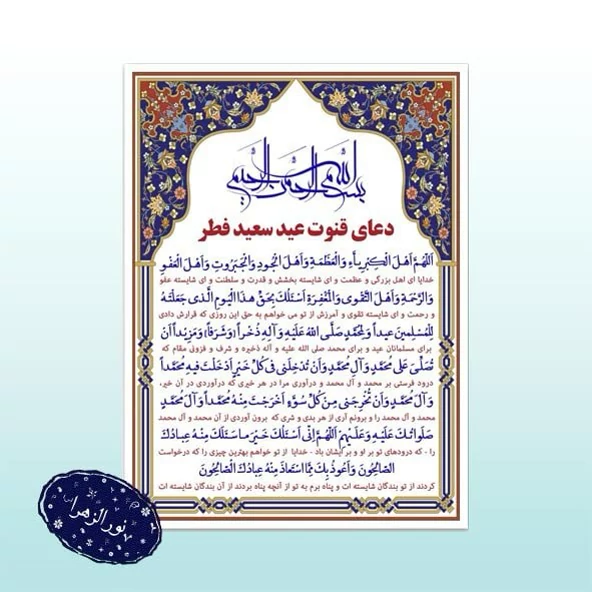 بسم الله الرحمن الرحیم
دعای قنوت عید سعید فطر
اَللّهُمَّ اَهْلَ الْکِبْرِیاَّءِ وَالْعَظَمَةِ وَاَهْلَ الْجُودِ وَالْجَبَرُوتِ وَاَهْلَ الْعَفْوِ
خدایا ای اهل بزرگی و عظمت و ای شایسته بخشش و قدرت و سلطنت و ای شایسته عفو
وَالرَّحْمَةِ وَاَهْلَ التَّقْوى وَالْمَغْفِرَةِ اَسْئَلُکَ بِحَقِّ هذَا الْیَومِ الَّذى جَعَلْتَهُ
و رحمت و ای شایسته تقوی و آمرزش از تو می خواهم به حق این روزی که قرارش دادی
لِلْمُسْلِمینَ عیداً وَلِمُحَمَّدٍ صَلَّى اللهُ عَلَیْهِ وَآلِهِ ذُخْراً (وَشَرَفاً) وَمَزْیداً اَنْ
برای مسلمانان عید و برای محمد صلی الله علیه و آله ذخیره و شرف و فزونی مقام که
تُصَلِّىَ عَلى مُحَمَّدٍ وَآلِ مُحَمَّدٍ وَاَنْ تُدْخِلَنى فى کُلِّ خَیْرٍ اَدْخَلْتَ فیهِ مُحَمَّداً
درود فرستی بر محمد و آل محمد و درآوری مرا در هر خیری که درآوردی در آن خیر،
وَآلَ مُحَمَّدٍ وَاَنْ تُخْرِجَنى مِنْ کُلِّ سُوَّءٍ اَخْرَجْتَ مِنْهُ مُحَمَّداً وَآلَ مُحَمَّدٍ
محمد و آل محمد را و برونم آری از هر بدی و شری که برون آوردی از آن محمد و آل محمد
صَلَواتُکَ عَلَیْهِ وَعَلَیْهِمْ اَللّهُمَّ اِنّى اَسْئَلُکَ خَیْرَ ما سَئَلَکَ مِنْهُ عِبادُکَ
را - که درودهای تو بر او و بر ایشان باد - خدایا از تو خواهم بهترین چیزی را که درخواست
الصّالِحُونَ وَاَعُوذُ بِکَ مِمَّا اسْتَعاذَ مِنْهُ عِبادُکَ الصّالِحُونَ
کردند از تو بندگان شایسته ات و پناه برم به تو از آنچه پناه بردند از آن بندگان شایسته ات
نورالزهرا